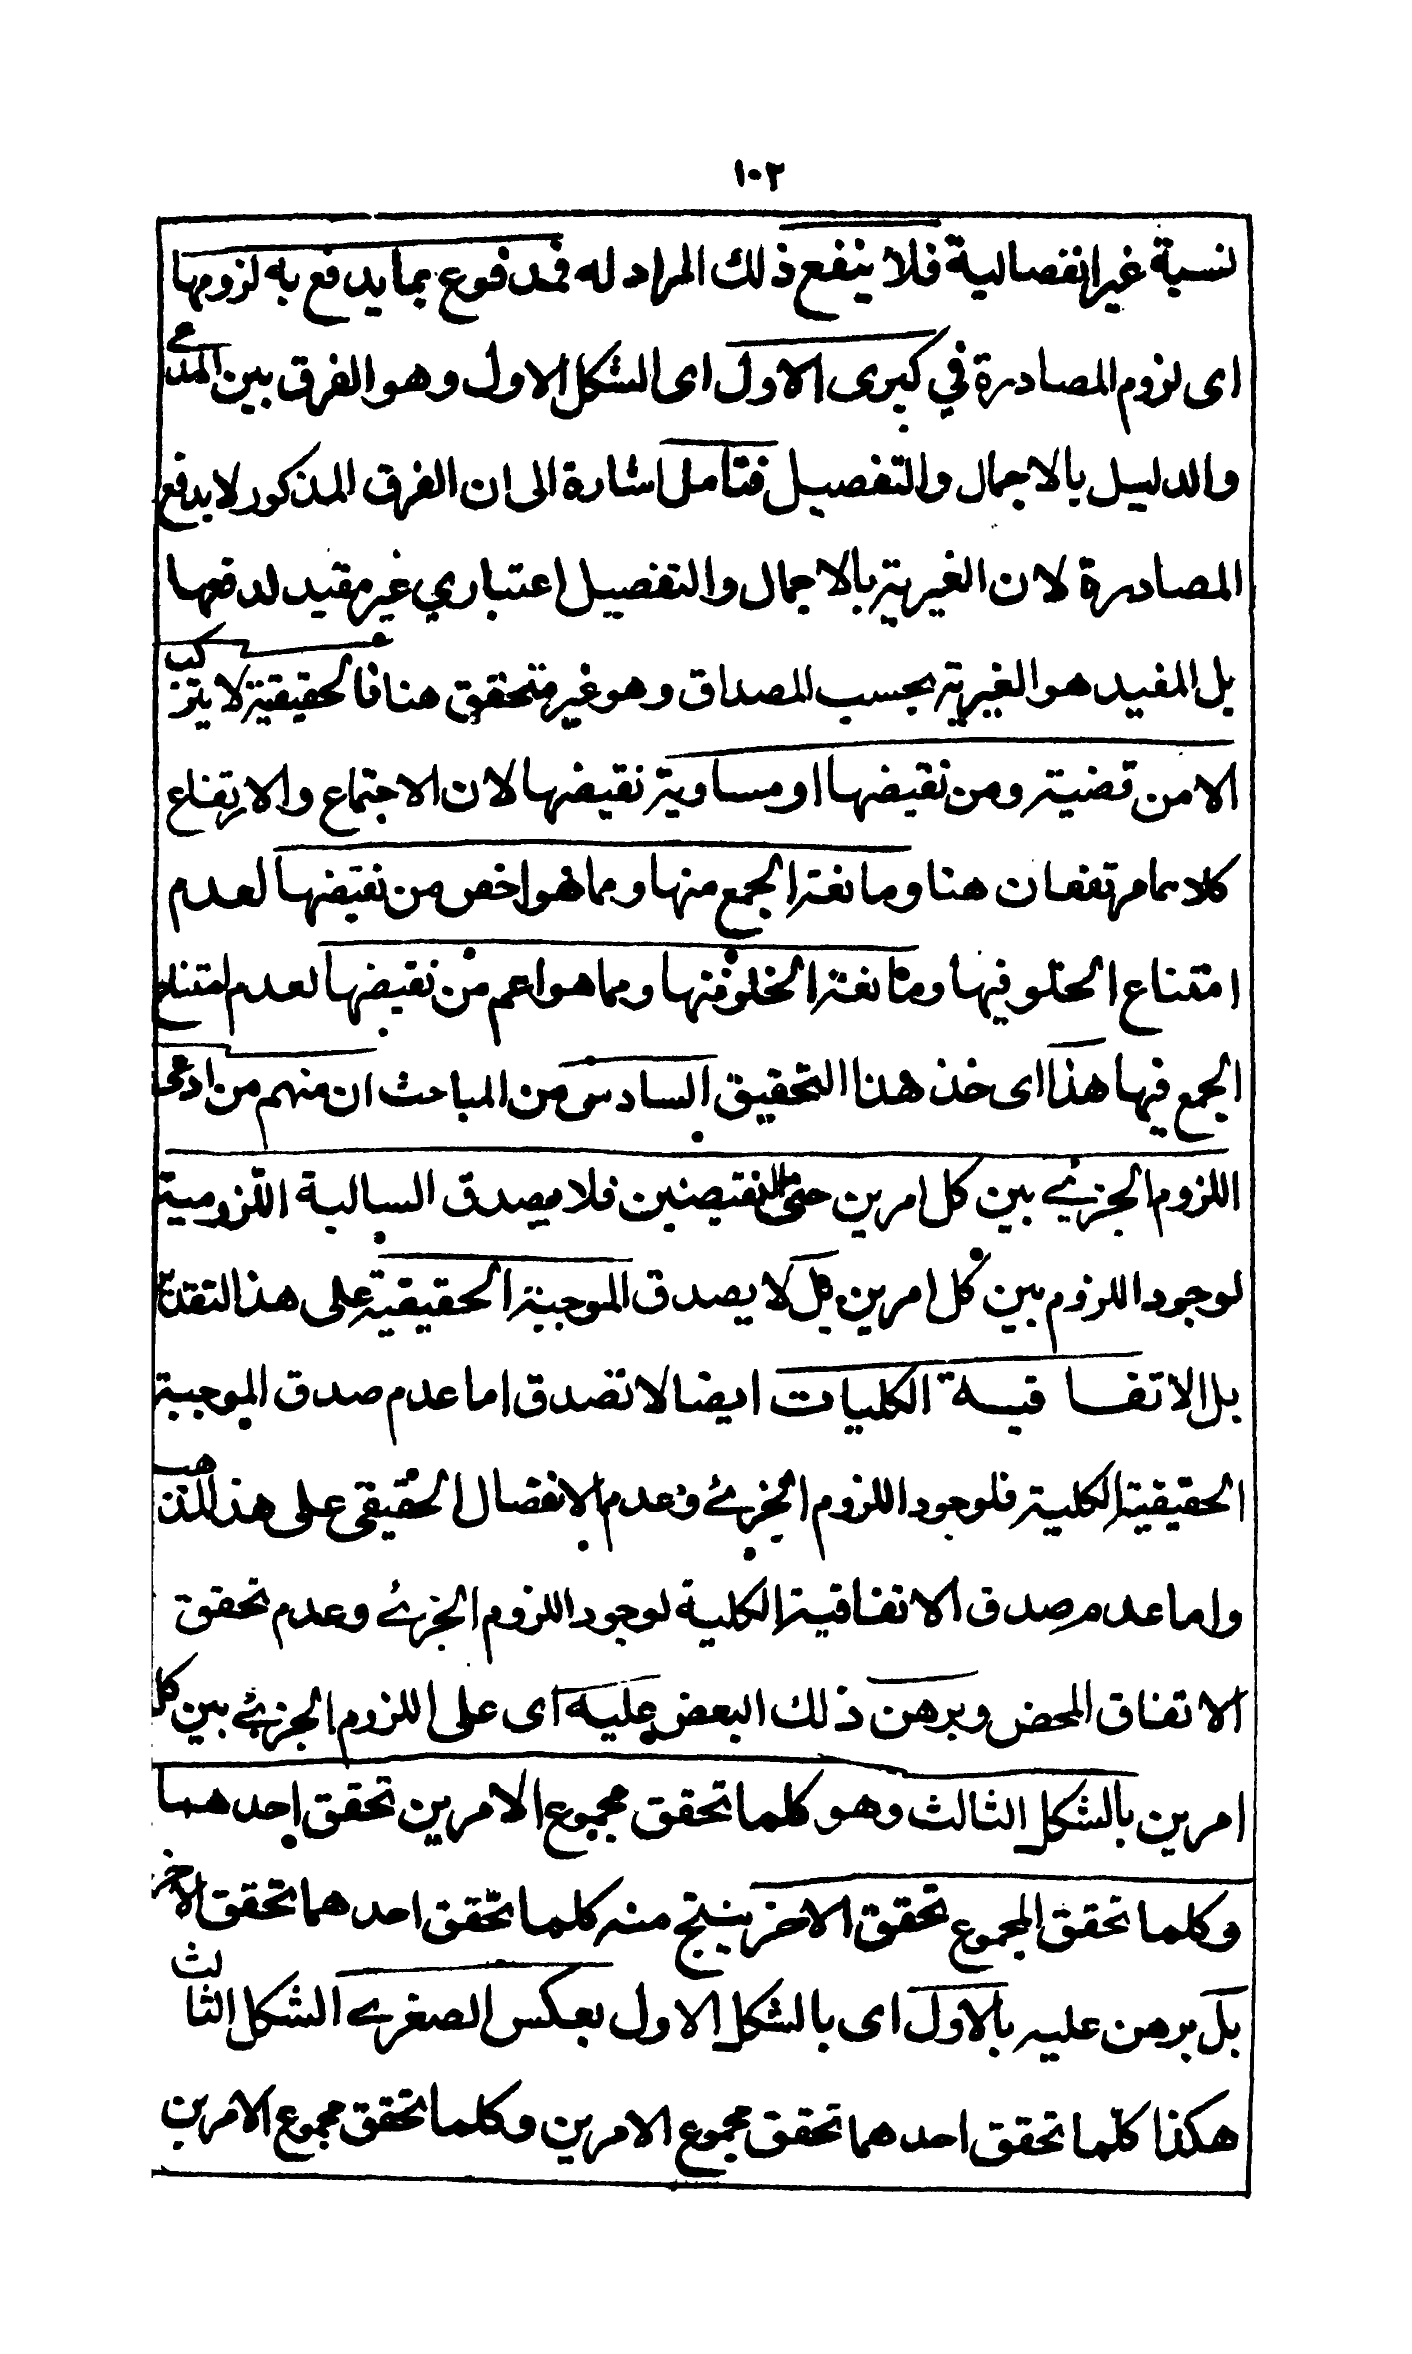 ١٠٢
نسبة غير انفصالية فلا ينفع ذلك المراد له فمدفوع بما يدفع به لزومها
اى لزوم المصادرة في كبرى الاول اى الشكل الاول وهو الفرق بين المدعى
والدليل بالاجمال والتفصيل فتأمل اشارة الى ان الفرق المذكور لا يدفع
المصادرة لان الغيرية بالاجمال والتفصيل اعتباري غير مقيد لدفعها
بل المفيد هو الغيرية بحسب المصداق وهو غير متحقق هنا فالحقيقية لا يتركب
الا من قضية ومن نقيضها او مساوية نقيضها لان الاجتماع والارتفاع
كلاهما مرتفعان هنا ومانعة الجمع منها ومما هو اخص من نقيضها لعدم
امتناع الخلو فيها ومانعة الخلو منها ومما هو اعم من نقيضها لعدم امتناع
الجمع فيها هذا اى خذ هذا التحقيق السادس من المباحث ان منهم من ادعى
اللزوم الجزئي بين كل امرين حتى النقيضين فلا يصدق السالبة اللزومية
لوجود اللزوم بين كل امرين بل لا يصدق الموجبة الحقيقية على هذا التقدير
بل الاتفا قية الكليات ايضا لا تصدق اما عدم صدق الموجبة
الحقيقية الكلية فلوجود اللزوم الجزئي وعدم الانفصال الحقيقى على هذا المذهب
واما عدم صدق الاتفاقية الكلية لوجود اللزوم الجزئي وعدم تحقق
الاتفاق المحض وبرهن ذلك البعض عليه اى على اللزوم الجزئي بين كل
امرين بالشكل الثالث وهو كلما تحقق مجموع الامرين تحقق احدهما
وكلما تحقق المجموع تحقق الاخر ينتج منه كلما تحقق احدهما تحقق الاخر
بل برهن عليه بالاول اى بالشكل الاول بعكس الصغرى الشكل الثالث
هكذا كلما تحقق احدهما تحقق مجموع الامرين وكلما تحقق مجموع الامرين